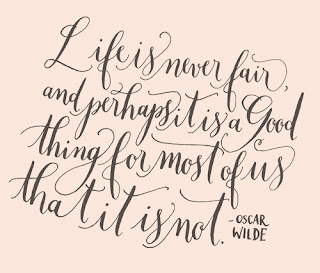 Life is never fair,
and perhaps it is a Good
thing for most of us
that it is not.
-OSCAR
WILDE